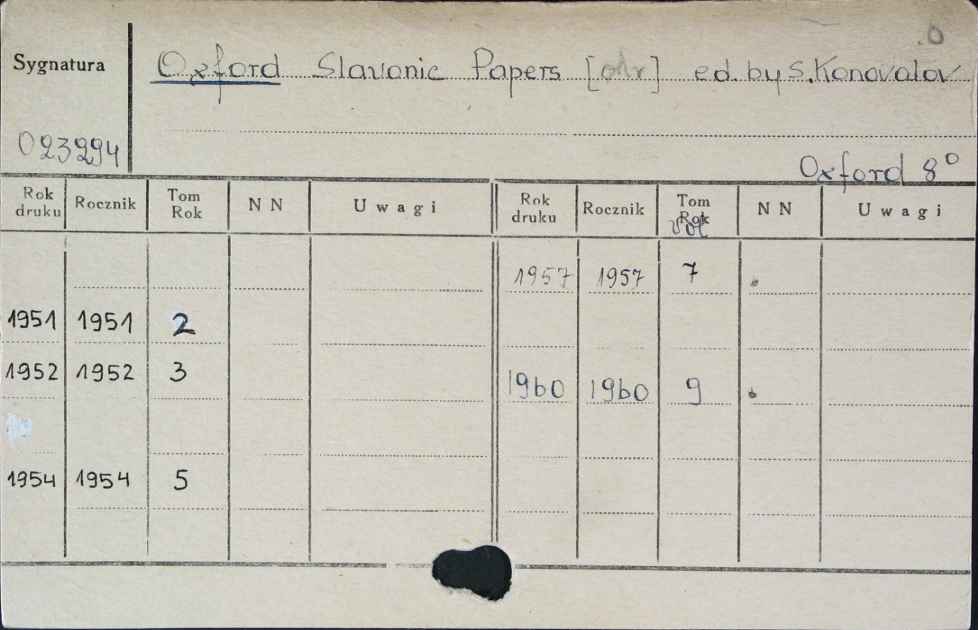 .O
Sygnatura Oxford Slavonic Papers [odr] ed. by S. Konovalov
023294
Oxford 8°
Rok druku Rocznik Tom Rok N N Uwagi Rok druku Rocznik Tom Rok Vol N N Uwagi
1957 1957 7 .
1951 1951 2
1952 1952 3
1960 1960 9 .
1954 1954 5